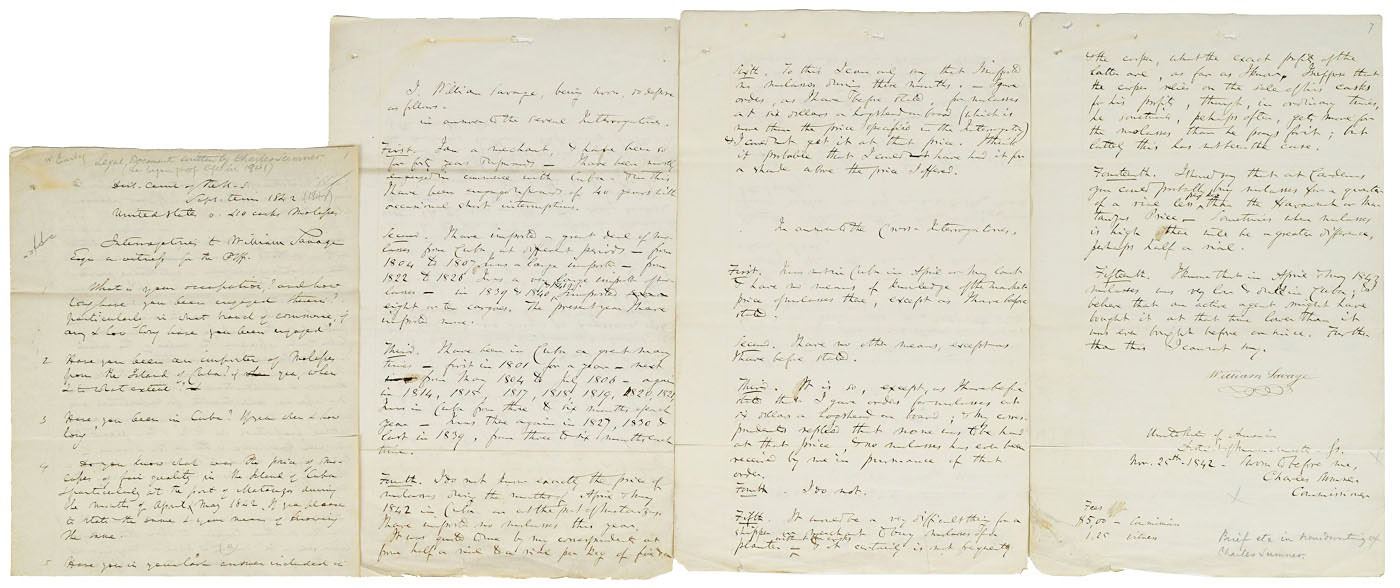 Early Legal Document written by Charles Sumner
1
Sept. term 1842
United States v. 210 casks Molasses
Interrogatories to William Savage
Esqr a witness for the Plff.
1 What is your occupation? and how
long have you been engaged therein?
particularly in what branch of commerce, if
any & how long have you been engaged?
2 Have you been an importer of Molasses
from the Island of Cuba? if yea, when
& to what extent?
3 Have you been in Cuba? If yea when & how
long
4 Do you know what was the price of mo-
lasses of fair quality in the Island of Cuba
& particularly at the port of Matanzas during
the months of April & May 1842. If yea please
to state the same & your means of knowing
the same.
5 Have you in your last answer included
I William Savage, being sworn, so depose
as follows.
in answer to the several Interrogatories.
First. I am a merchant, & have been so
for forty years & upwards — I have been mostly
engaged in commerce with Cuba. In this
I have been engaged upwards of 40 years with
occasional short interruptions.
Second. I have imported a great deal of mo-
lasses from Cuba at different periods — from
1804 to 1807 I was a large importer — from
1822 to 1826 I was a very large importer of mo-
lasses — in 1839 & 1840 I imported
eight or ten cargoes. The present year I have
imported none.
Third. I have been in Cuba a great many
times — first in 1801 for a year — next
from May 1804 to July 1806 — again
in 1814, 1815, 1817, 1818, 1819, 1820, 1821
I was in Cuba from three to six months of each
year — I was there again in 1827, 1830 &
last in 1839, from three to six months each
time.
Fourth. I do not know exactly the price of
molasses during the months of April & May
1842 in Cuba or at the port of Matanzas.
I have imported no molasses this year.
It was quoted to me by my correspondents at
from half a rial to a rial per keg of five &
6
Sixth. To this I can only say that I imported
no molasses during these months. — I gave
orders, as I have before stated, for molasses
at six dollars a hogshead on board (which is
more than the price specified in the Interrogatory)
& I could not get it at that price. I think
it probable that I could have had it for
a shade above the price I offered.
In answer to the Cross-Interrogatories.
First. I was not in Cuba in April or May last
& have no means of knowledge of the market
price of molasses there, except as I have before
stated.
Second. I have no other means, except as
I have before stated.
Third. It is so, except, as I have before
stated that I gave orders for molasses at
six dollars a hogshead on board; & my corres-
pondents replied that none was to be had
at that price & no molasses has ever been
received by me in pursuance of that
order.
Fourth. I do not.
Fifth. It would be a very difficult thing for a
shipper or merchant to buy molasses of the
planter — & it certainly is not frequent
7
& the cooper, what the exact profits of the
latter are, as far as I know, I suppose that
the cooper relies on the sale of his casks
for his profit, though, in ordinary times,
he sometimes, perhaps often, gets more for
the molasses than he pays for it; but
lately this has not been the case.
Fourteenth. I should say that at Cardenas
you could probably buy molasses for a quarter
of a rial less than the Havannah or Ma-
tanzas Price — Sometimes when molasses
is high there will be a greater difference,
perhaps half a rial.
Fifteenth. I know that in April & May 1842
molasses was very low & dull in Cuba; &
believe that an active agent might have
bought it at that time lower than it
was ever bought before or since. Further
than this I cannot say.
William Savage
United States of America
District of Massachusetts Ss.
Nov. 25th 1842 — Sworn to before me,
Charles Sumner
Commissioner
Fees
$5,00 —
1.25 witness
Brief etc in handwriting of
Charles Sumner.